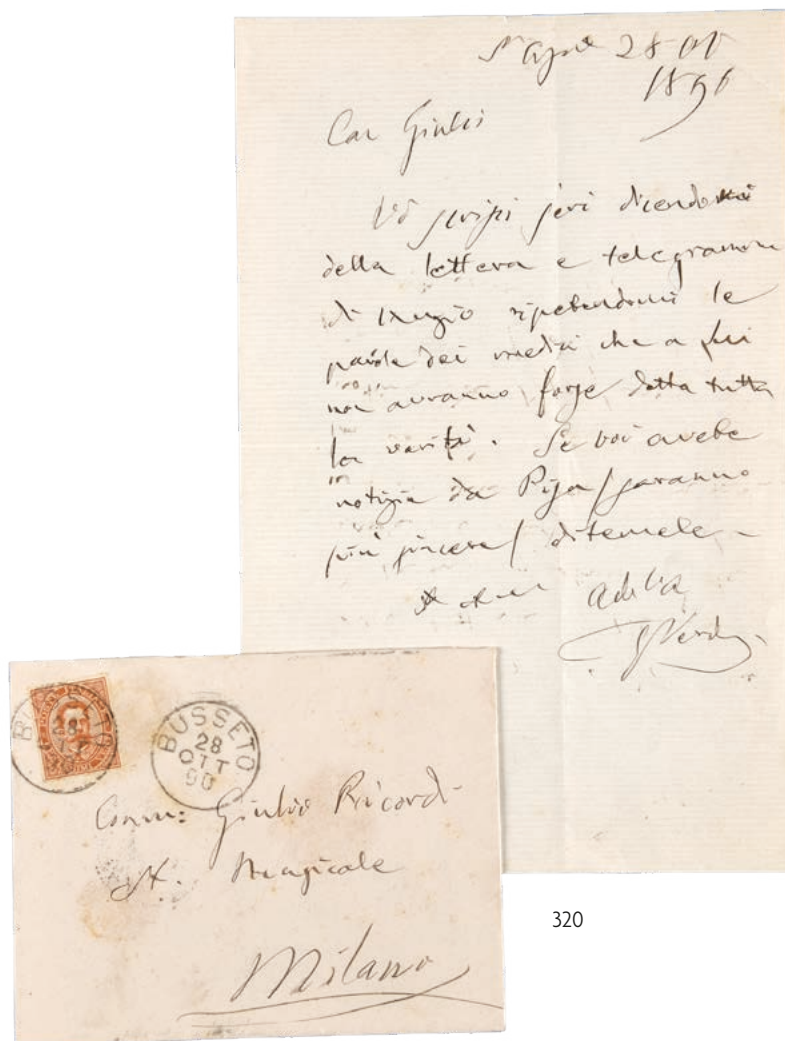 St Agata 28 Ott
1890
Car Giulio
Vi scrissi jeri dicendovi
della lettera e telegramma
di Muzio ripetendomi le
parole dei medici che a lui
non avranno forse detta tutta
la verità. Se voi avete
notizie da Pisa/saranno
più sincere/ ditemele –
Addio
G Verdi
BUSSETO
28
OTT
90
BUSSETO
28
OTT
90
Comm: Giulio Ricordi
St. Musicale
Milano
320